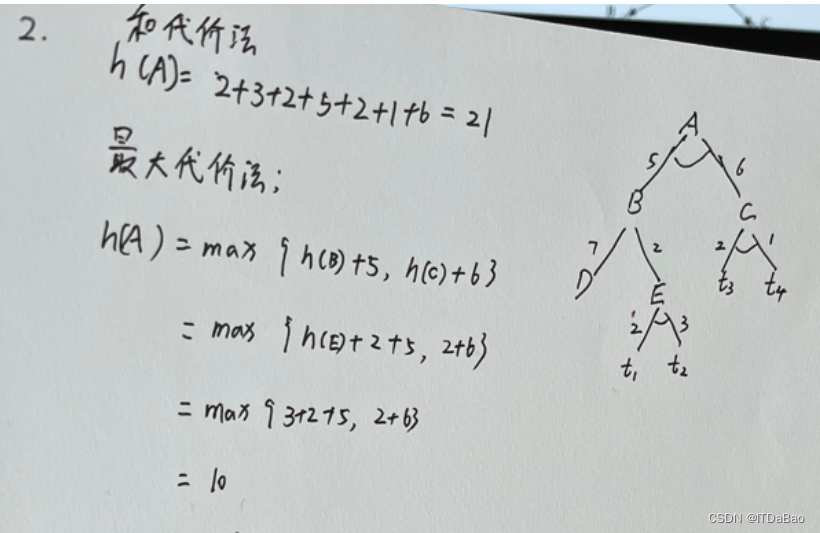 2.
和代价法
h(A)= 2+3+2+5+2+1+6=21
最大代价法;
h(A) = max {h(B)+5, h(C)+6}
= max {h(E)+2+5, 2+6}
= max {3+2+5, 2+6}
= 10
A
5
6
B
C
7
2
2
1
D
E
t3
t4
2
3
t1
t2
CSDN @ITDaBao